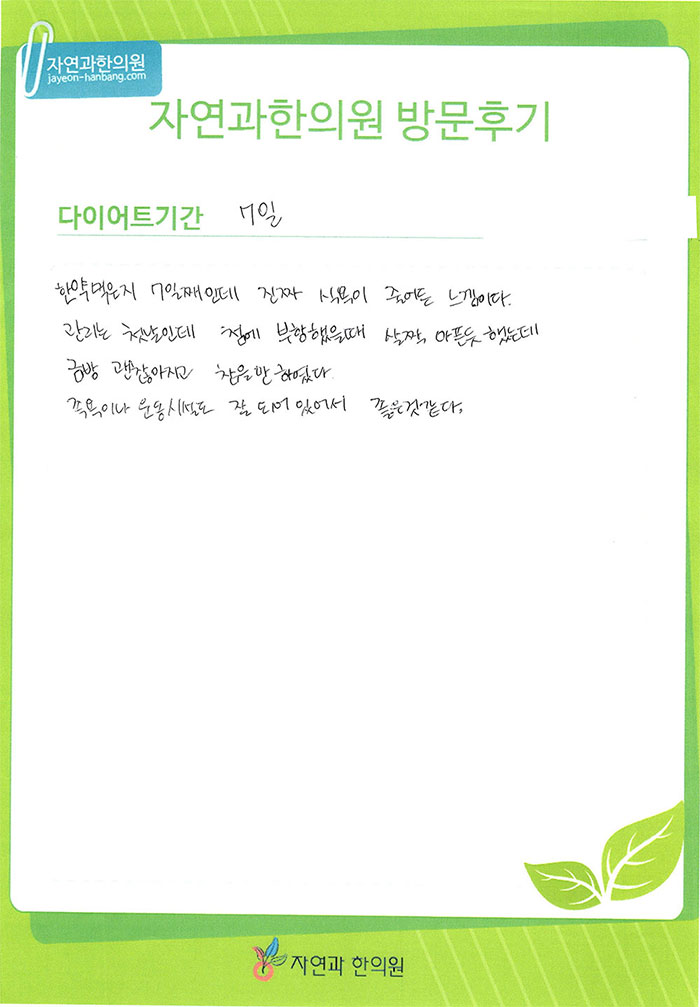 자연과한의원
jayeon-hanbang.com
자연과한의원 방문후기
다이어트기간 7일
한약먹은지 7일째인데 진짜 식욕이 줄어든 느낌이다.
관리는 첫날인데 첨에 부항했을때 살짝 아픈듯 했는데
금방 괜찮아지고 참을만 하였다.
족욕이나 운동시설도 잘 되어 있어서 좋은것같다.
자연과 한의원